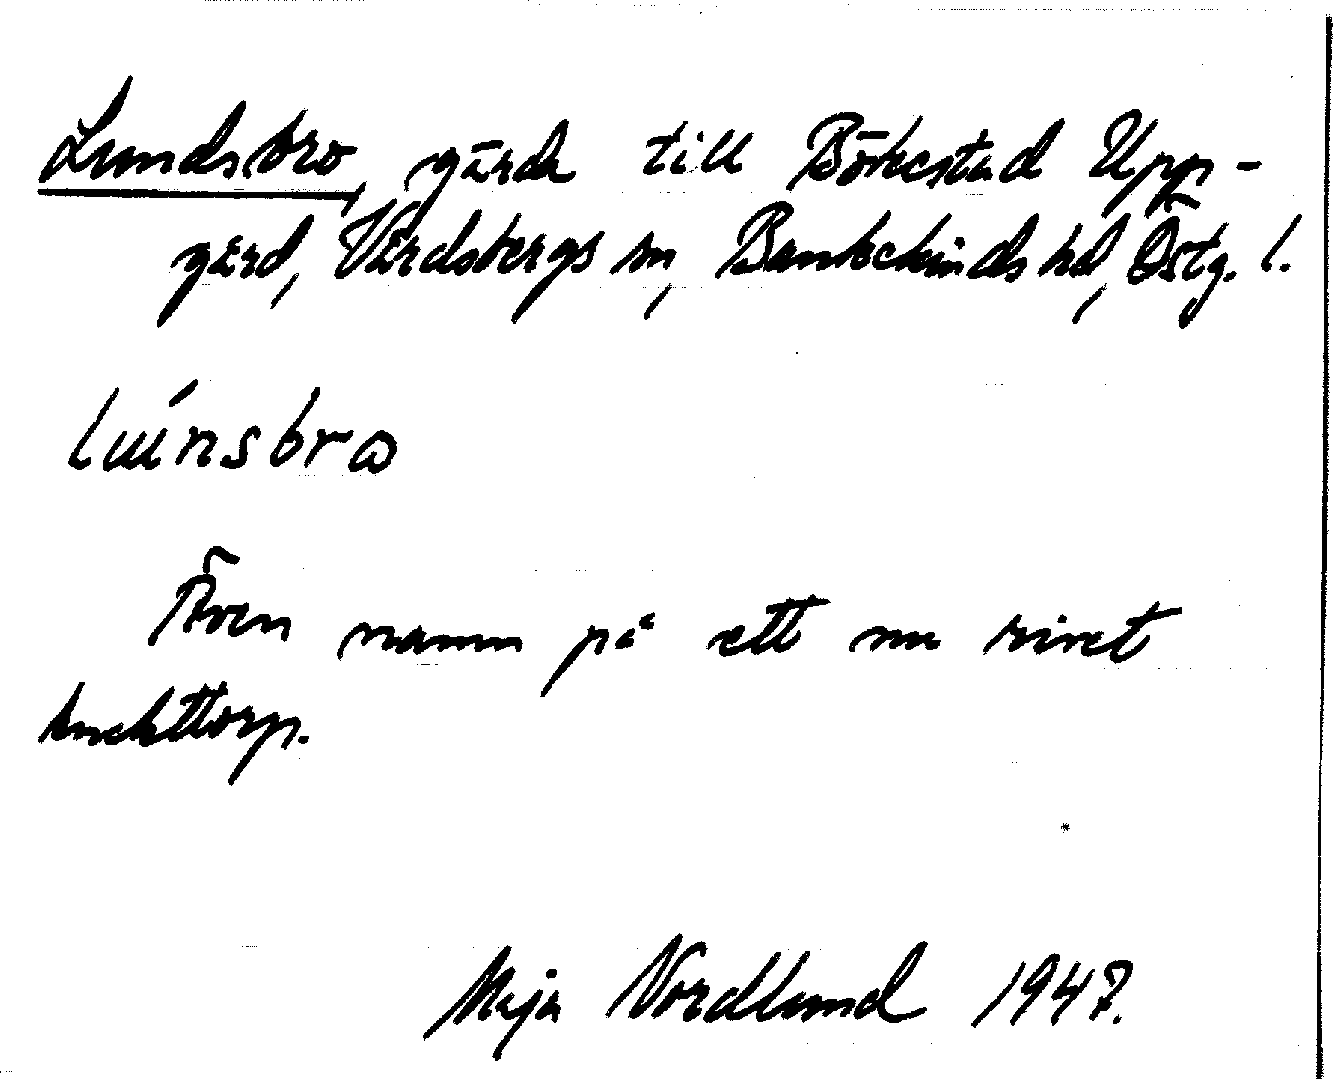 Lundsbro, gärde till Börkestad Upp-
gård, Vårdsbergs sn, Bankekinds hd, Östg. l.
luńsbro
Även namn på ett nu rivet
knekttorp.
Maja Nordlund 1947.